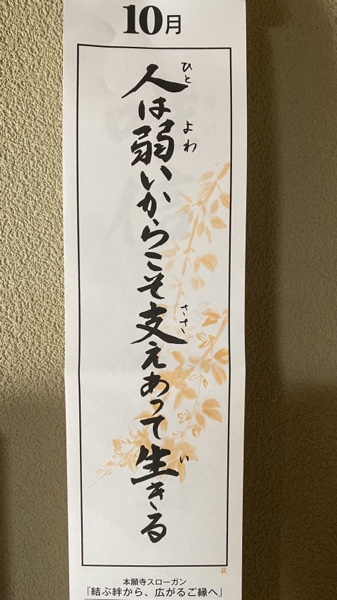 10月
人は弱いからこそ支えあって生きる
ひと
よわ
ささ
い
本願寺スローガン
『結ぶ絆から、広がるご縁へ』